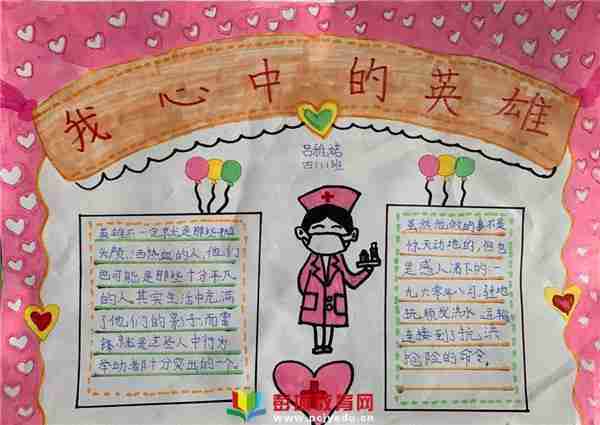 我心中的英雄
吕雅婧
四(1)班
英雄不一定就是那些抛
头颅、洒热血的人,他们
也可能是那些十分平凡
的人其实生活中充满
了他们的影子,而雷
锋就是这些人中行为
举动都十分突出的一个。
虽然他做的事不是
惊天动地的,但也
是感人泪下的一
九六零年八月,驻地
抚顺发洪水
连接到了抗洪
抢险的命令
彭城教育网
www.pcjyedu.cn